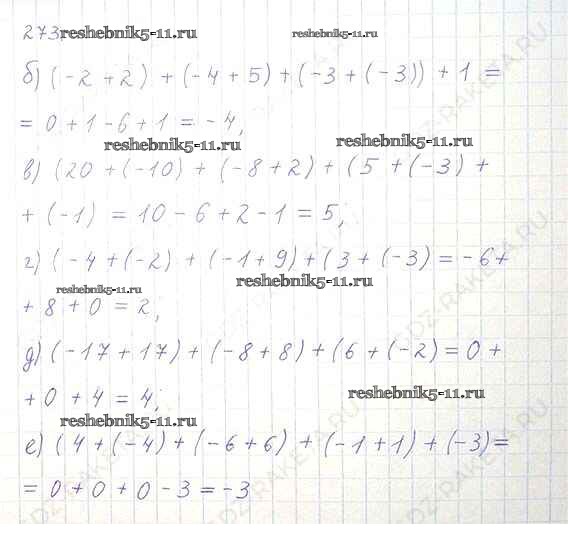 273. reshebnik5-11.ru reshebnik5-11.ru
б) (-2 + 2) + (-4 + 5) + (-3 + (-3)) + 1 =
= 0 + 1 - 6 + 1 = -4,
reshebnik5-11.ru reshebnik5-11.ru
в) (20 + (-10) + (-8 + 2) + (5 + (-3) +
+ (-1) = 10 - 6 + 2 - 1 = 5;
г) (-4 + (-2) + (-1 + 9) + (3 + (-3) = -6 +
reshebnik5-11.ru reshebnik5-11.ru
+ 8 + 0 = 2;
д) (-17 + 17) + (-8 + 8) + (6 + (-2) = 0 +
+ 0 + 4 = 4; reshebnik5-11.ru
reshebnik5-11.ru
е) (4 + (-4) + (-6 + 6) + (-1 + 1) + (-3) =
= 0 + 0 + 0 - 3 = -3
GDZ-RAKETA.RU